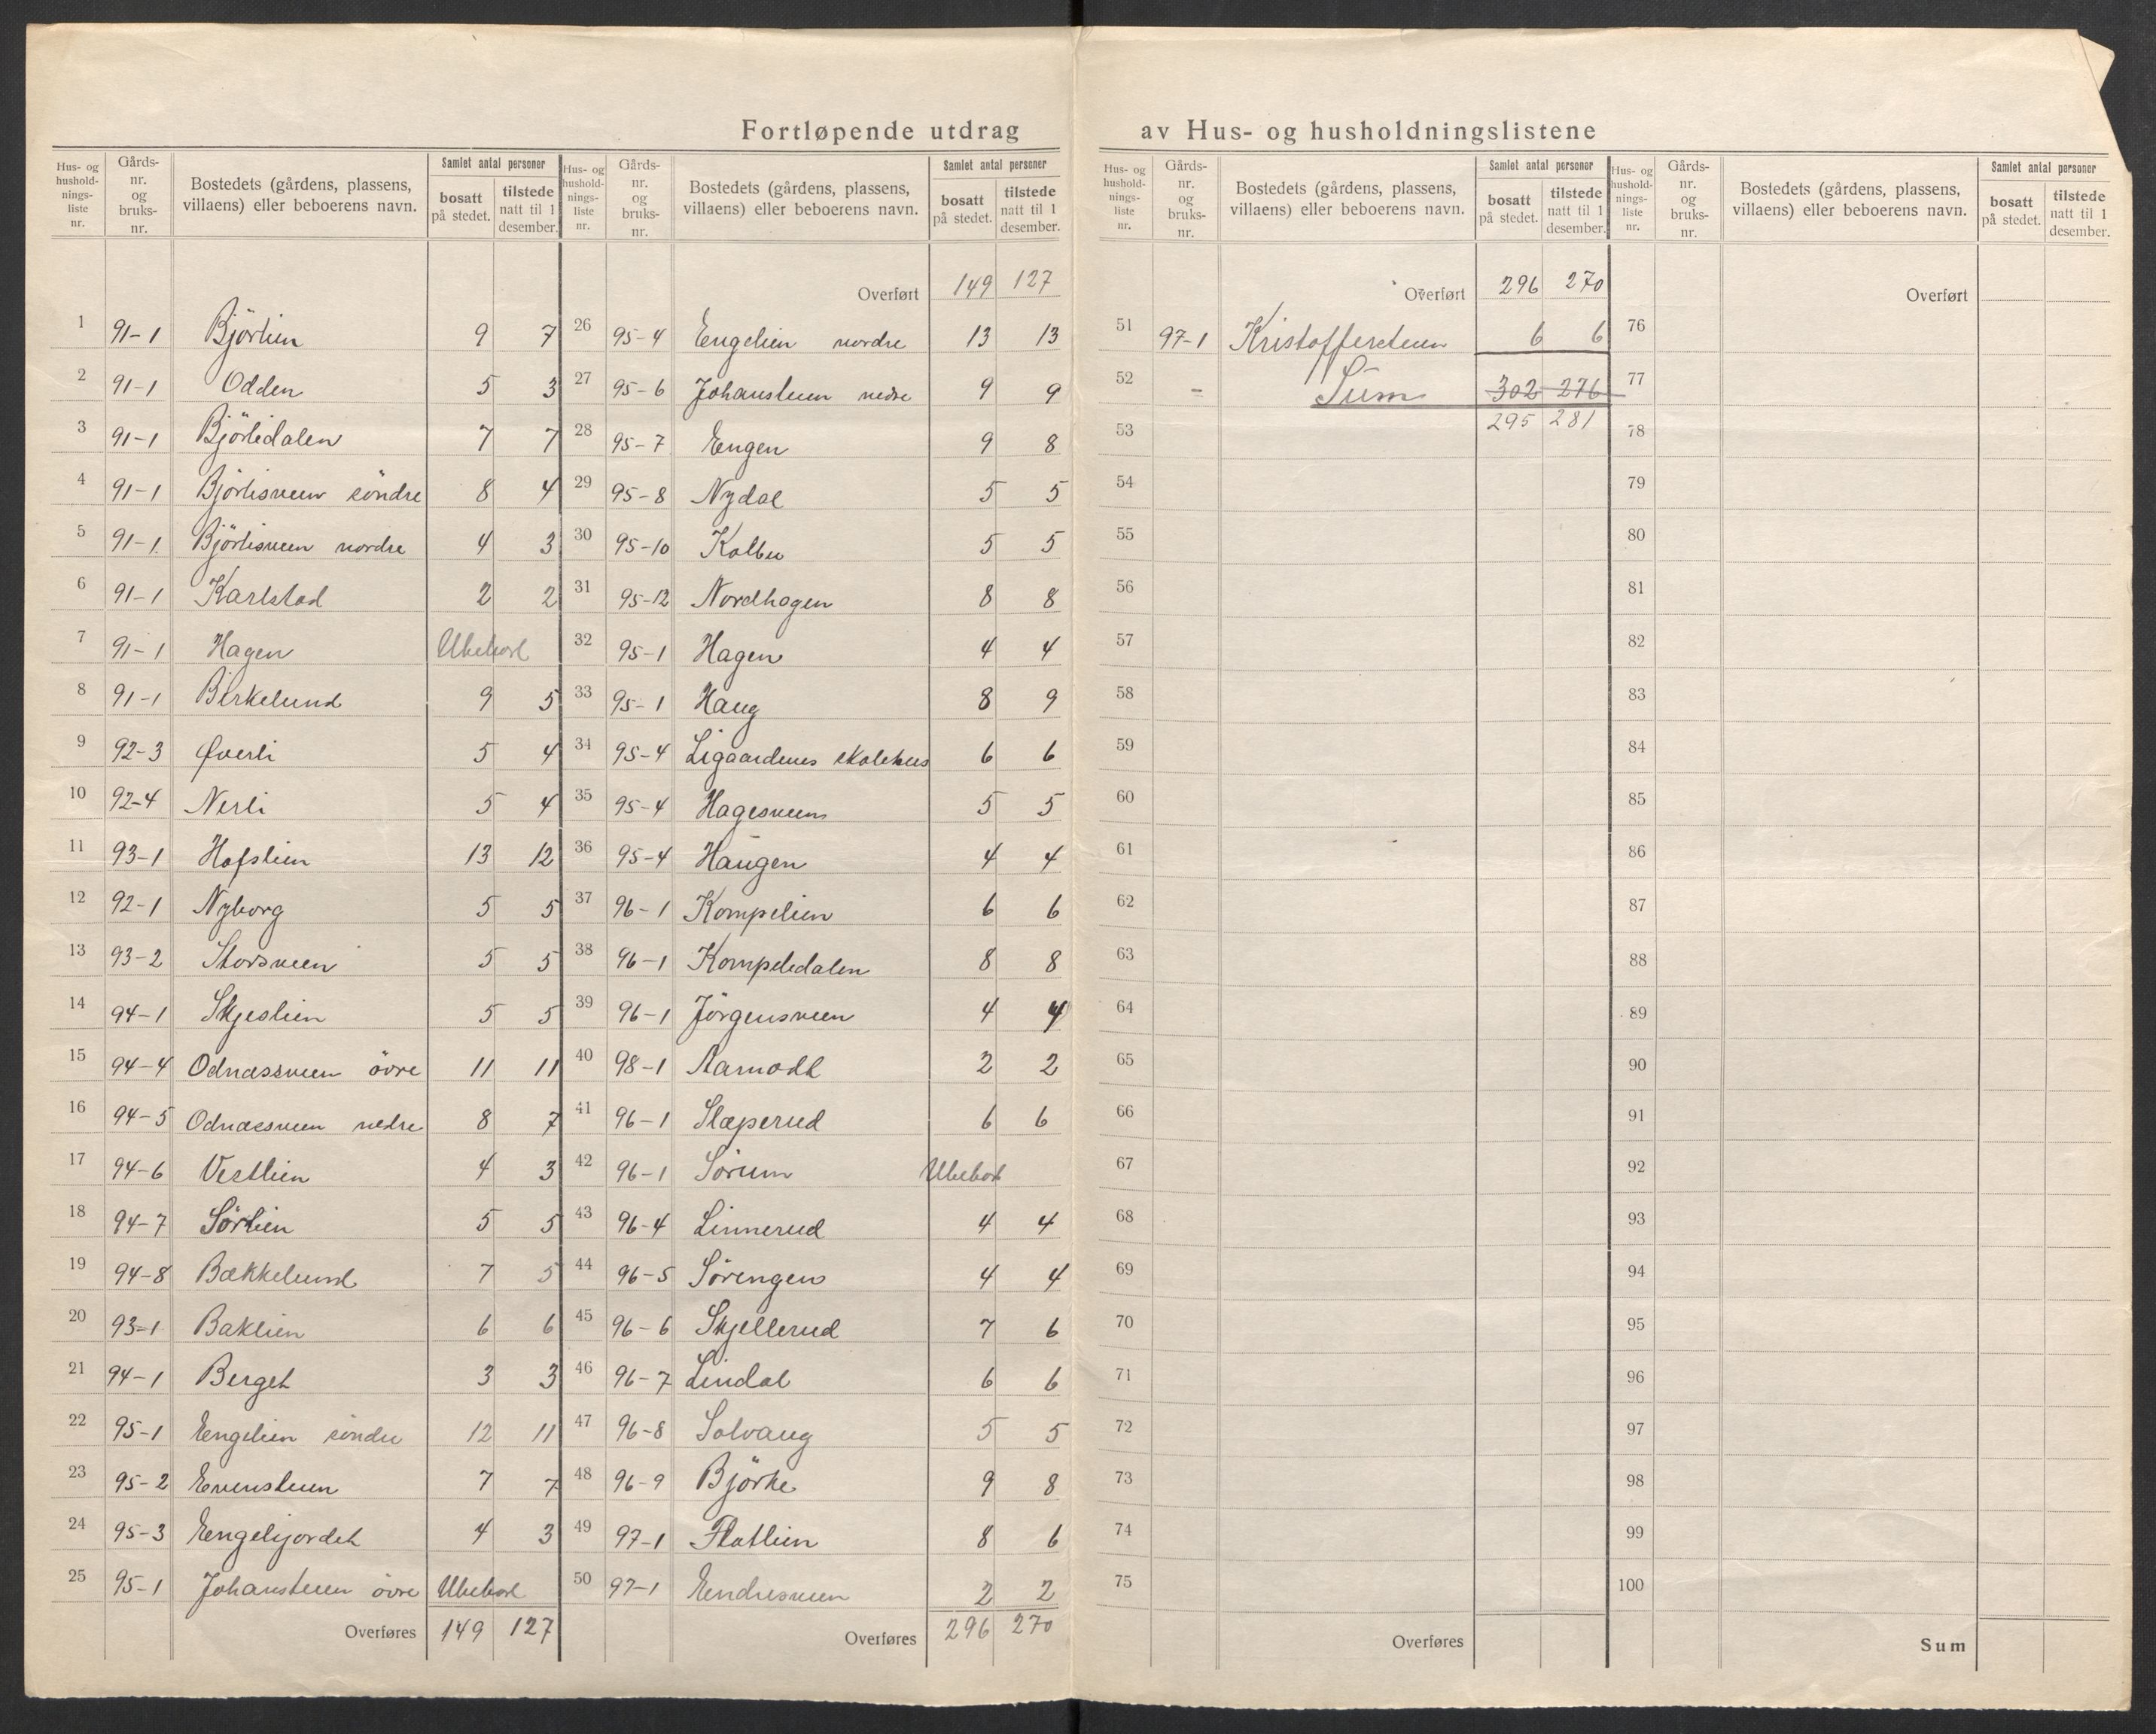 Fortløpende utdrag av Hus- og husholdningslistene
Hus- og hushold-nings-liste nr. Gårds-nr. og bruks-nr. Bostedets (gårdens, plassens, villaens) eller beboerens navn. Samlet antal personer bosatt på stedet. tilstede natt til 1 desember.
1 91-1 Björlien 9 7
2 91-1 Odden 5 3
3 91-1 Björlidalen 7 7
4 91-1 Björlisveen söndre 8 4
5 91-1 Björlisveen nordre 4 3
6 91-1 Karlstad 2 2
7 91-1 Hagen Ubebod
8 91-1 Birkelund 9 5
9 92-3 Øverli 5 4
10 92-4 Nerli 5 4
11 93-1 Hofslien 13 12
12 92-1 Nyborg 5 5
13 93-2 Storsveen 5 5
14 94-1 Skjeslien 5 5
15 94-4 Odnæssveen övre 11 11
16 94-5 Odnæsveen nedre 8 7
17 94-6 Vestlien 4 3
18 94-7 Sörlien 5 5
19 94-8 Bækkelund 7 5
20 93-1 Baklien 6 6
21 94-1 Berget 3 3
22 95-1 Engelien söndre 12 11
23 95-2 Evensteen 7 7
24 95-3 Engelijordet 4 3
25 95-1 Johansteen övre Ubebod
Overføres 149 127
Hus- og hushold-nings-liste nr. Gårds-nr. og bruks-nr. Bostedets (gårdens, plassens, villaens) eller beboerens navn. Samlet antal personer bosatt på stedet. tilstede natt til 1 desember.
Overført 149 127
26 95-4 Engelien nordre 13 13
27 95-6 Johansteen nedre 9 9
28 95-7 Engen 9 8
29 95-8 Nydal 5 5
30 95-10 Kolbu 5 5
31 95-12 Nordhagen 8 8
32 95-1 Hagen 4 4
33 95-1 Haug 8 9
34 95-4 Ligaardenes skolehus 6 6
35 95-4 Hagesveen 5 5
36 95-4 Haugen 4 4
37 96-1 Kompelien 6 6
38 96-1 Kompelidalen 8 8
39 96-1 Jörgensveen 4 4
40 98-1 Aamodt 2 2
41 96-1 Slæperud 6 6
42 96-1 Sörum Ubebod
43 96-4 Linnerud 4 4
44 96-5 Sörengen 4 4
45 96-6 Skjellerud 7 6
46 96-7 Lindal 6 6
47 96-8 Solvang 5 5
48 96-9 Björke 9 8
49 97-1 Flatlien 8 6
50 97-1 Endresveen 2 2
Overføres 296 270
Hus- og hushold-nings-liste nr. Gårds-nr. og bruks-nr. Bostedets (gårdens, plassens, villaens) eller beboerens navn. Samlet antal personer bosatt på stedet. tilstede natt til 1 desember.
Overført 296 270
51 97-1 Kristoffersteen 6 6
52 - Sum 302 276
53 295 281
54
55
56
57
58
59
60
61
62
63
64
65
66
67
68
69
70
71
72
73
74
75
Overføres
Hus- og hushold-nings-liste nr. Gårds-nr. og bruks-nr. Bostedets (gårdens, plassens, villaens) eller beboerens navn. Samlet antal personer bosatt på stedet. tilstede natt til 1 desember.
Overført
76
77
78
79
80
81
82
83
84
85
86
87
88
89
90
91
92
93
94
95
96
97
98
99
100
Sum